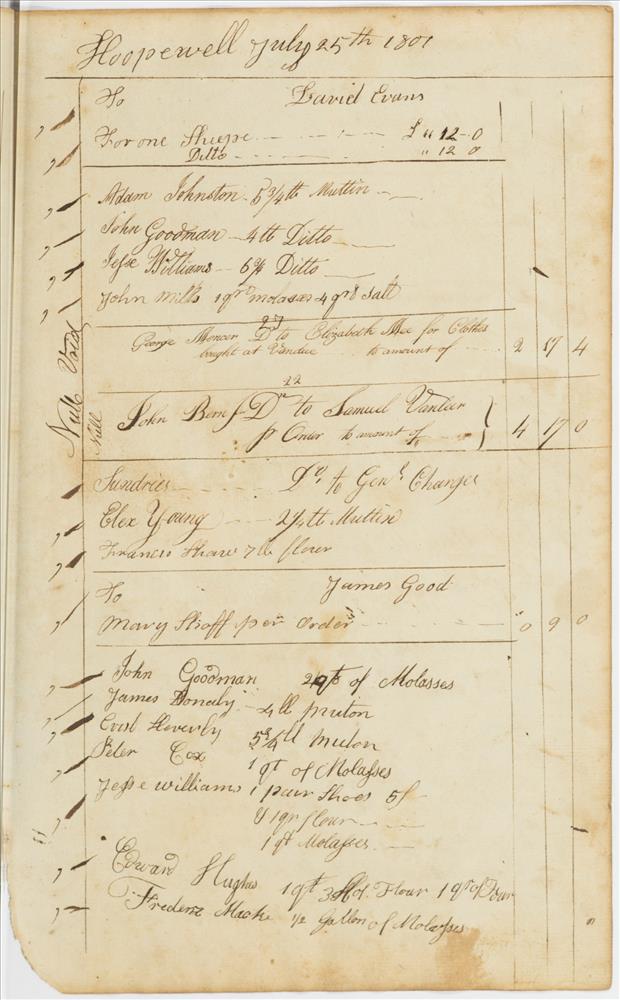 Hoopewell July 25th 1801
To David Evans
For one Sheepe £ " 12-0
Ditto " 12 0
Adam Johnston 5 3/4 lb Muttin
John Goodman 4 lb Ditto
Jesse Williams 6 3/4 Ditto
John Mills 1 qrt molases 4 qrts Salt
27
George Mencer Dr to Elizabeth Mee for Clothes
bought at Vandue to amount of 2 17 4
Null Void
22
John Bern Dr to Samuel Vanleer
p Order to amount of 4 17 0
Null
Sundries Drs to Genl Charges
Elex Young 2 1/4 lb Muttin
Francis Shaw 7 lb flour
To James Good
Mary Shoff per Order " 0 9 0
John Goodman 2 qts of Molasses
James Donaly 4 lb muton
Evert Heverly 5 3/4 lb muton
Peter Cox 1 qt of Molasses
Jesse Williams 1 pair Shoes 5/
1 qr flour
1 qt Molasses
Edward Hughs 1 qt Flour 1 qr of
Frederic Mache 1/2 Gallon of Molasses